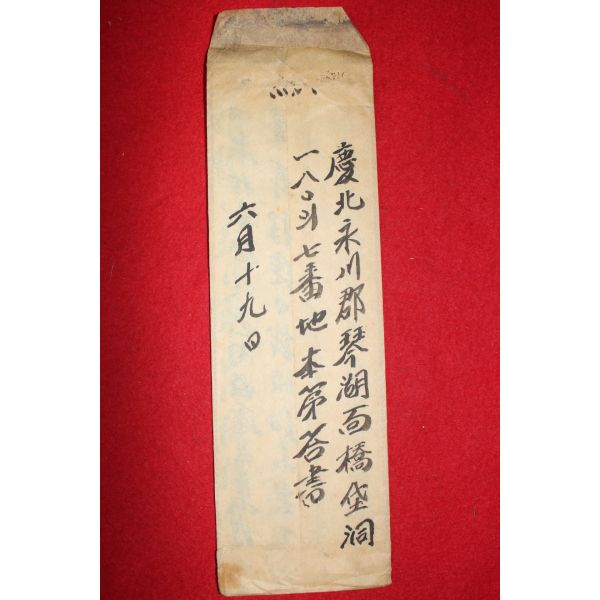 慶北永川郡琴湖面橋垈洞
一八〇의七番地本第答書
六月十九日